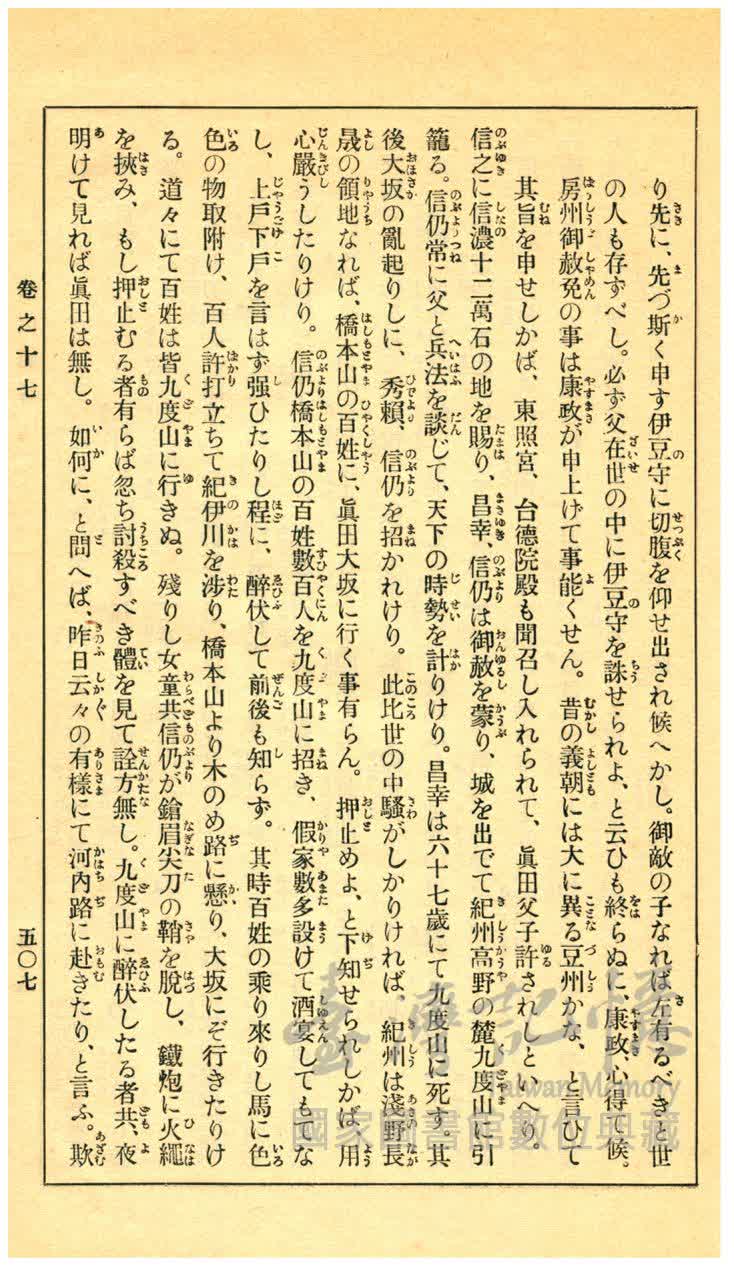 り先に、先づ斯く申す伊豆守に切腹を仰せ出され候へかし。御敵の子なれば左有るべきと世
の人も存ずべし。必ず父在世の中に伊豆守を誅せられよ、と云ひも終らぬに、康政、心得て候。
房州御赦免の事は康政が申上げて事能くせん。昔の義朝には大に異る豆州かな、と言ひて
其旨を申せしかば、東照宮、台德院殿も聞召し入れられて、眞田父子許されしといへり。
信之に信濃十二萬石の地を賜り、昌幸、信仍は御赦を蒙り、城を出でて紀州高野の麓九度山に引
籠る。信仍常に父と兵法を談じて、天下の時勢を計りけり。昌幸は六十七歲にて九度山に死す。其
後大坂の亂起りしに、秀賴、信仍を招かれけり。此比世の中騷がしかりければ、紀州は淺野長
晟の領地なれば、橋本山の百姓に、眞田大坂に行く事有らん。押止めよ、と下知せられしかば、用
心嚴うしたりけり。信仍橋本山の百姓數百人を九度山に招き、假家數多設けて酒宴してもてな
し、上戶下戶を言はず强ひたりし程に、醉伏して前後も知らず。其時百姓の乘り來りし馬に色
色の物取附け、百人許打立ちて紀伊川を涉り、橋本山より木のめ路に懸り、大坂にぞ行きたりけ
る。道々にて百姓は皆九度山に行きぬ。殘りし女童共信仍が鎗眉尖刀の鞘を脫し、鐵炮に火繩
を挾み、もし押止むる者有らば忽ち討殺すべき體を見て詮方無し。九度山に醉伏したる者共、夜
明けて見れば眞田は無し。如何に、と問へば、昨日云々の有樣にて河內路に赴きたり、と言ふ。欺
卷之十七
五〇七
臺灣記憶
Taiwan Memory
國家圖書館數位典藏